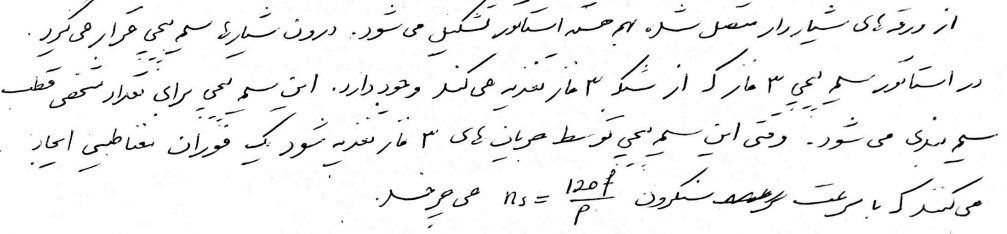 از ورقه‌های شیاردار متصل شده بهم هسته استاتور تشکیل می‌شود. درون شیارها سیم پیچی قرار می‌گیرد.
در استاتور سیم پیچی ۳ فاز که از شبکه ۳ فاز تغذیه می‌کند وجود دارد. این سیم پیچی برای تعداد مشخصی قطب
سیم بندی می‌شود. وقتی این سیم پیچی توسط جریان های ۳ فاز تغذیه شود یک فوران مغناطیسی ایجاد
می‌کنند که با سرعت سنکرون ns = 120f/P می‌چرخد.